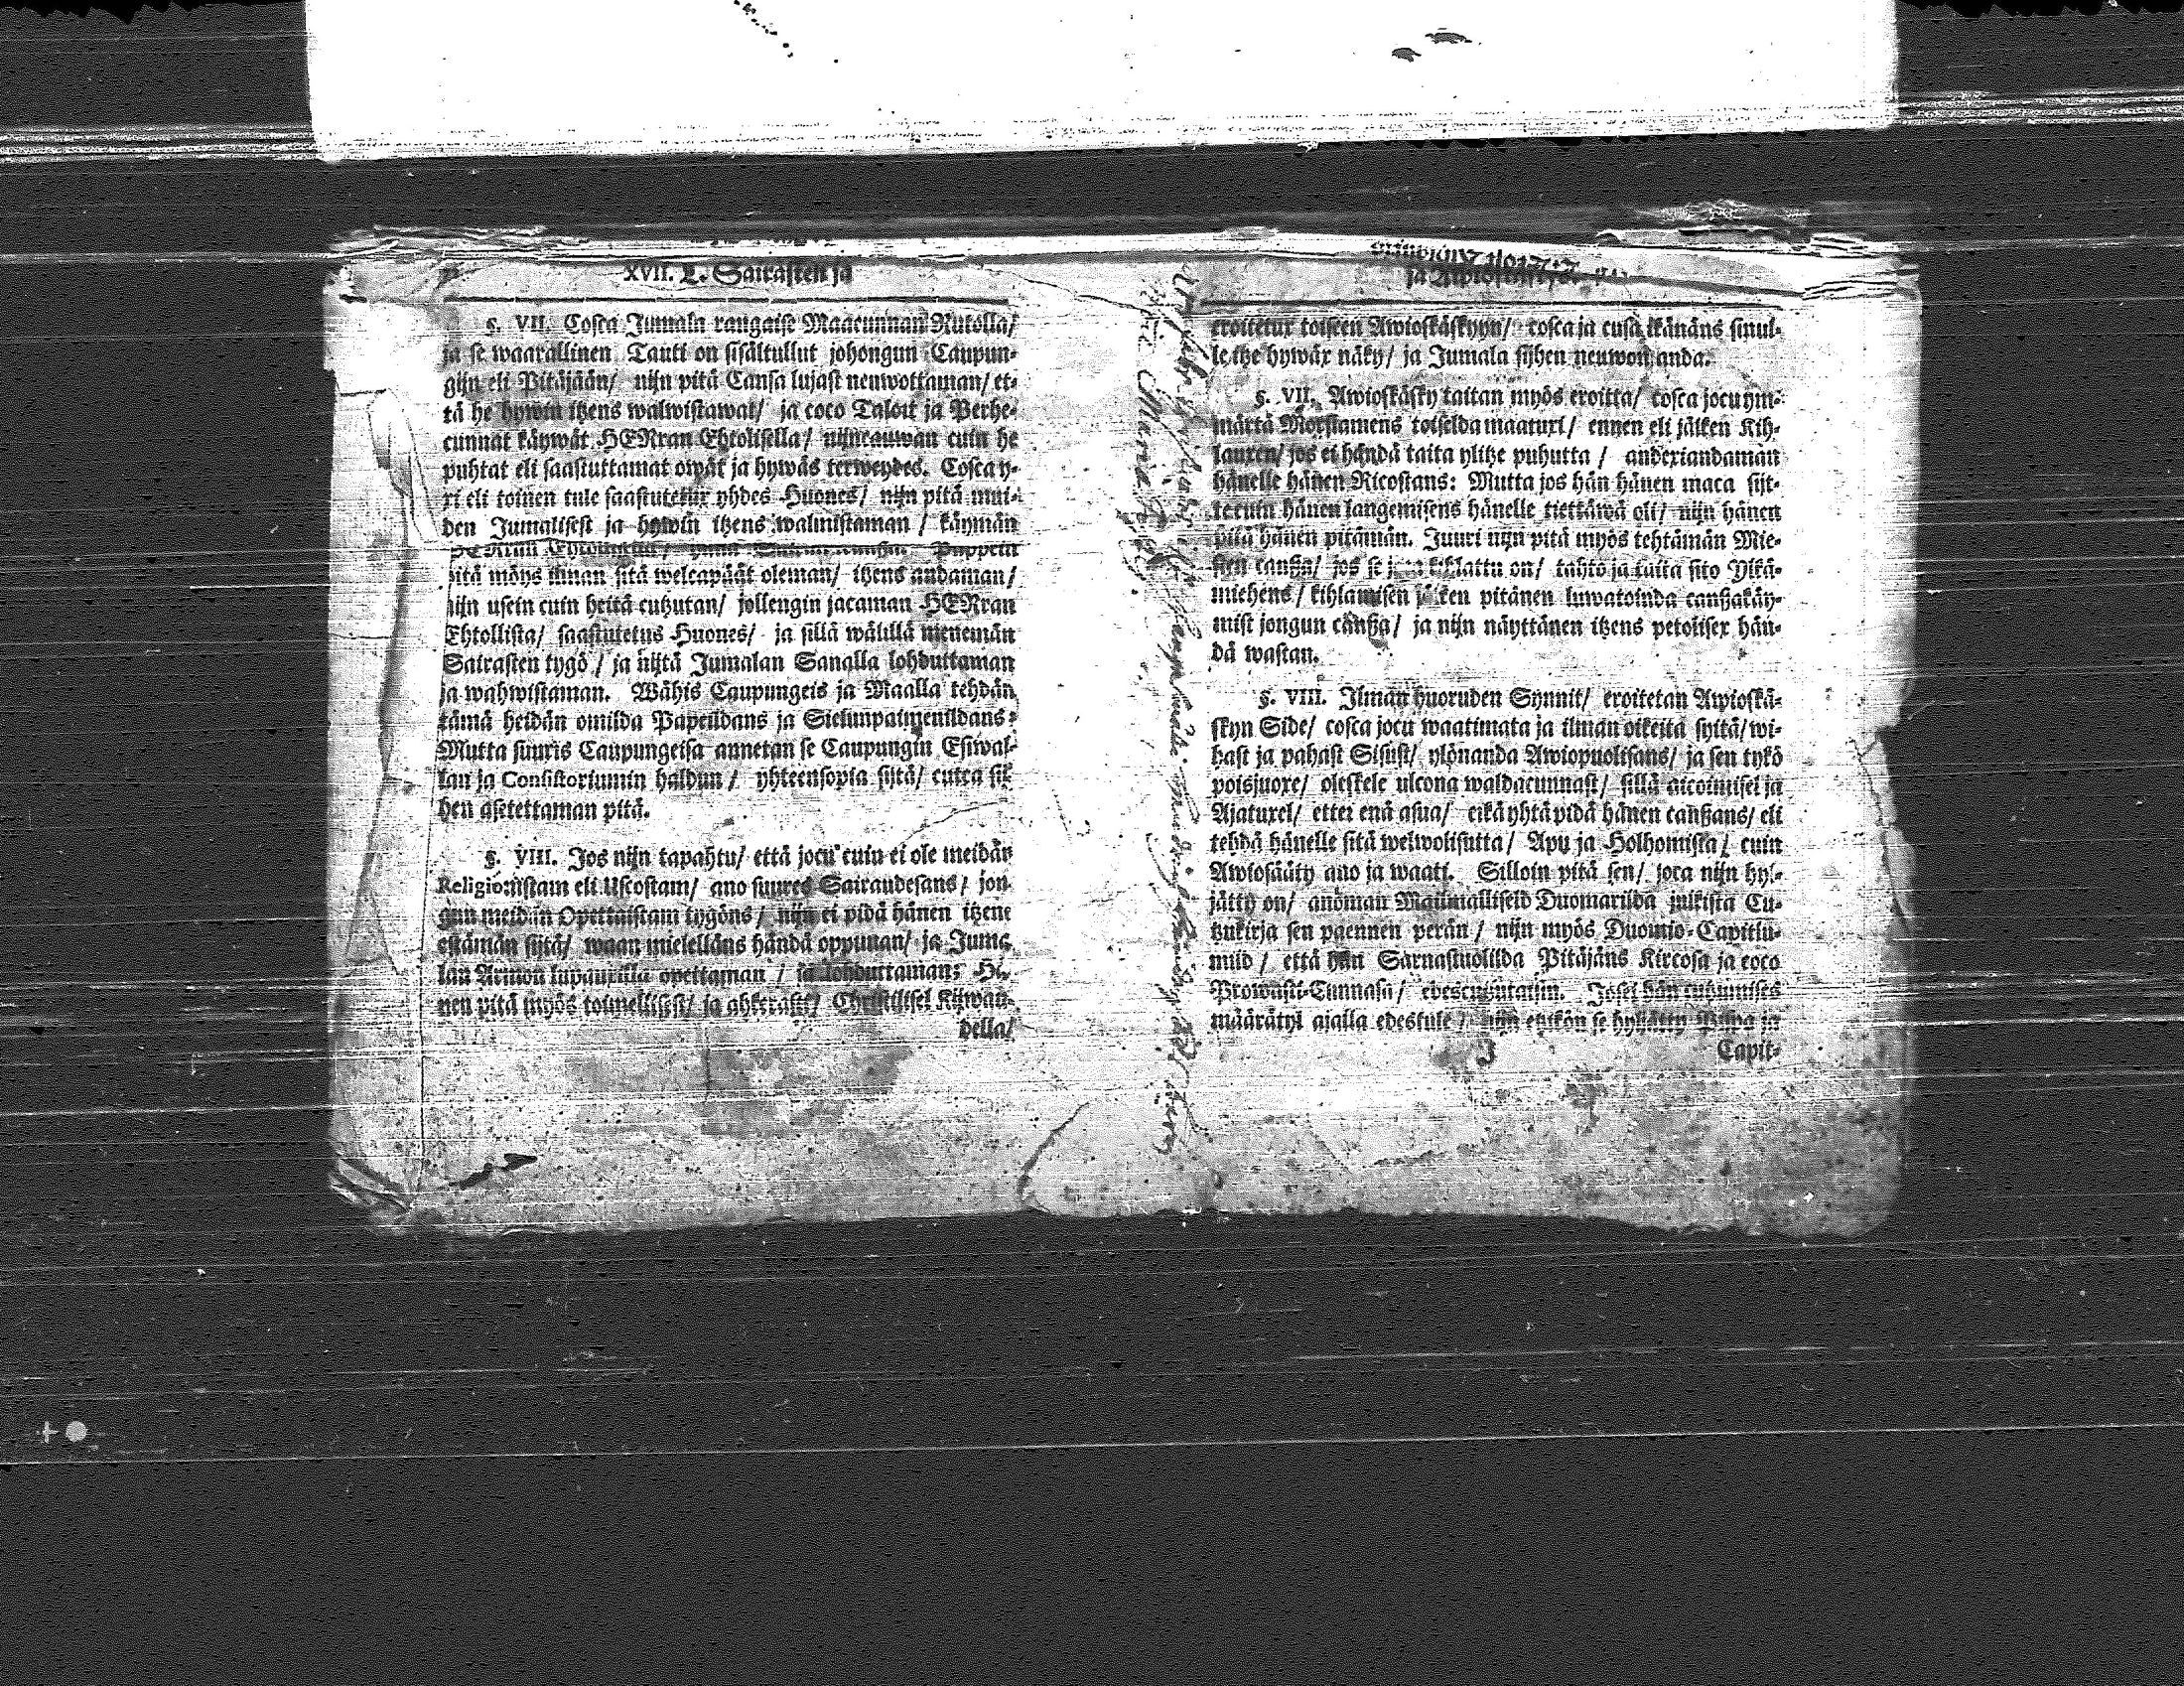 XVII. L. Sairasten ja
§. VII. Cosca Jumala rangaise Maacunnan Rutolla/
ja se waarallinen Tauti on sisältullut johongun Caupun-
gijn eli Pitäjään/ nijn pitä Cansa lujast neuwottaman/ et-
tä he hywin itzens walwistawat/ ja coco Talot ja Perhe-
cunnat käywät HERran Ehtolisella/ nijncauwan cuin he
puhtat eli saastuttamat owat ja hywäs terweydes. Cosca y-
xi eli toinen tule saastutetux yhdes Huones/ nijn pitä mui-
den Jumalisest ja hywin itzens walmistaman/ käymän
pitä möys ilman sitä welcapäät oleman/ itzens andaman/
nijn usein cuin heitä cutzutan/ jollengin jacaman HERran
Ehtollista/ saastutetus Huones/ ja sillä wälillä menemän
Sairasten tygö/ ja nijtä Jumalan Sanalla lohduttaman
ja wahwistaman. Wähis Caupungeis ja Maalla tehdän
tämä heidän omilda Papeildans ja Sielunpaimenildans:
Mutta suuris Caupungeisa annetan se Caupungin Esiwal-
lan ja Consistoriumin haldun/ yhteensopia sijtä/ cuica sij-
hen asetettaman pitä.
§. VIII. Jos nijn tapahtu/ että jocu cuin ei ole meidän
Religionistam eli Uscostam/ ano suures Sairaudesans/ jon-
gun meidän Opettaistam tygöns/ nijn ei pidä hänen itzens
estämän sijtä/ waan mielelläns händä oppunan/ ja Juma-
lan Armon lupauxilla opettaman/ ja lohduttaman: Hä-
nen pitä myös toimellisest/ ja ahkerast/ Christilisel Kijwau-
della/
ja
eroitetux toiseen Awioskäskyyn/ cosca ja cusa ikänäns sinul-
le itze hywäx näky/ ja Jumala sijhen neuwon anda.
§. VII. Awioskäsky taitan myös eroitta/ cosca jocu ym-
märtä Morsiamens toiselda maatuxi/ ennen eli jälken Kih-
lauxen/ jos ei händä taita ylitze puhutta/ andexiandaman
hänelle hänen Ricostans: Mutta jos hän hänen maca sijt-
tecuin hänen langemisens hänelle tiettäwä oli/ nijn hänen
pitä hänen pitämän. Juuri nijn pitä myös tehtämän Mie-
hen canssa/ jos se joca kihlattu on/ tahto ja taita sito Ylkä-
miehens/ kihlamisen jälken pitänen luwatoinda canssakäy-
mist jongun canssa/ ja nijn näyttänen itzens petolisex hän-
dä wastan.
§. VIII. Ilman huoruden Synnit/ eroitetan Awioskä-
skyn Side/ cosca jocu waatimata ja ilman oikeita syitä/ wi-
hast ja pahast Sisust/ ylönanda Awiopuolisans/ ja sen tykö
poisjuoxe/ oleskele ulcona waldacunnast/ sillä aicoimisel ja
Ajatuxel/ ettei enä asua/ eikä yhtä pidä hänen canssans/ eli
tehdä hänelle sitä welwolisutta/ Apu ja Holhomista/ cuin
Awiosääty ano ja waati. Silloin pitä sen/ joca nijn hyl-
jätty on/ anoman Mailmalliseld Duomarilda julkista Cu-
tzukirja sen paennen perän/ nijn myös Duomio-Capitlu-
mild/ että hän Sarnastuolilda Pitäjäns Kircosa ja coco
Prowasti-Cunnasa/ edescuzutaisin. Josei hän cuzumises
määrätyl ajalla edestule/ nijn etzikön se hyljätty Papa ja
J
Capit-